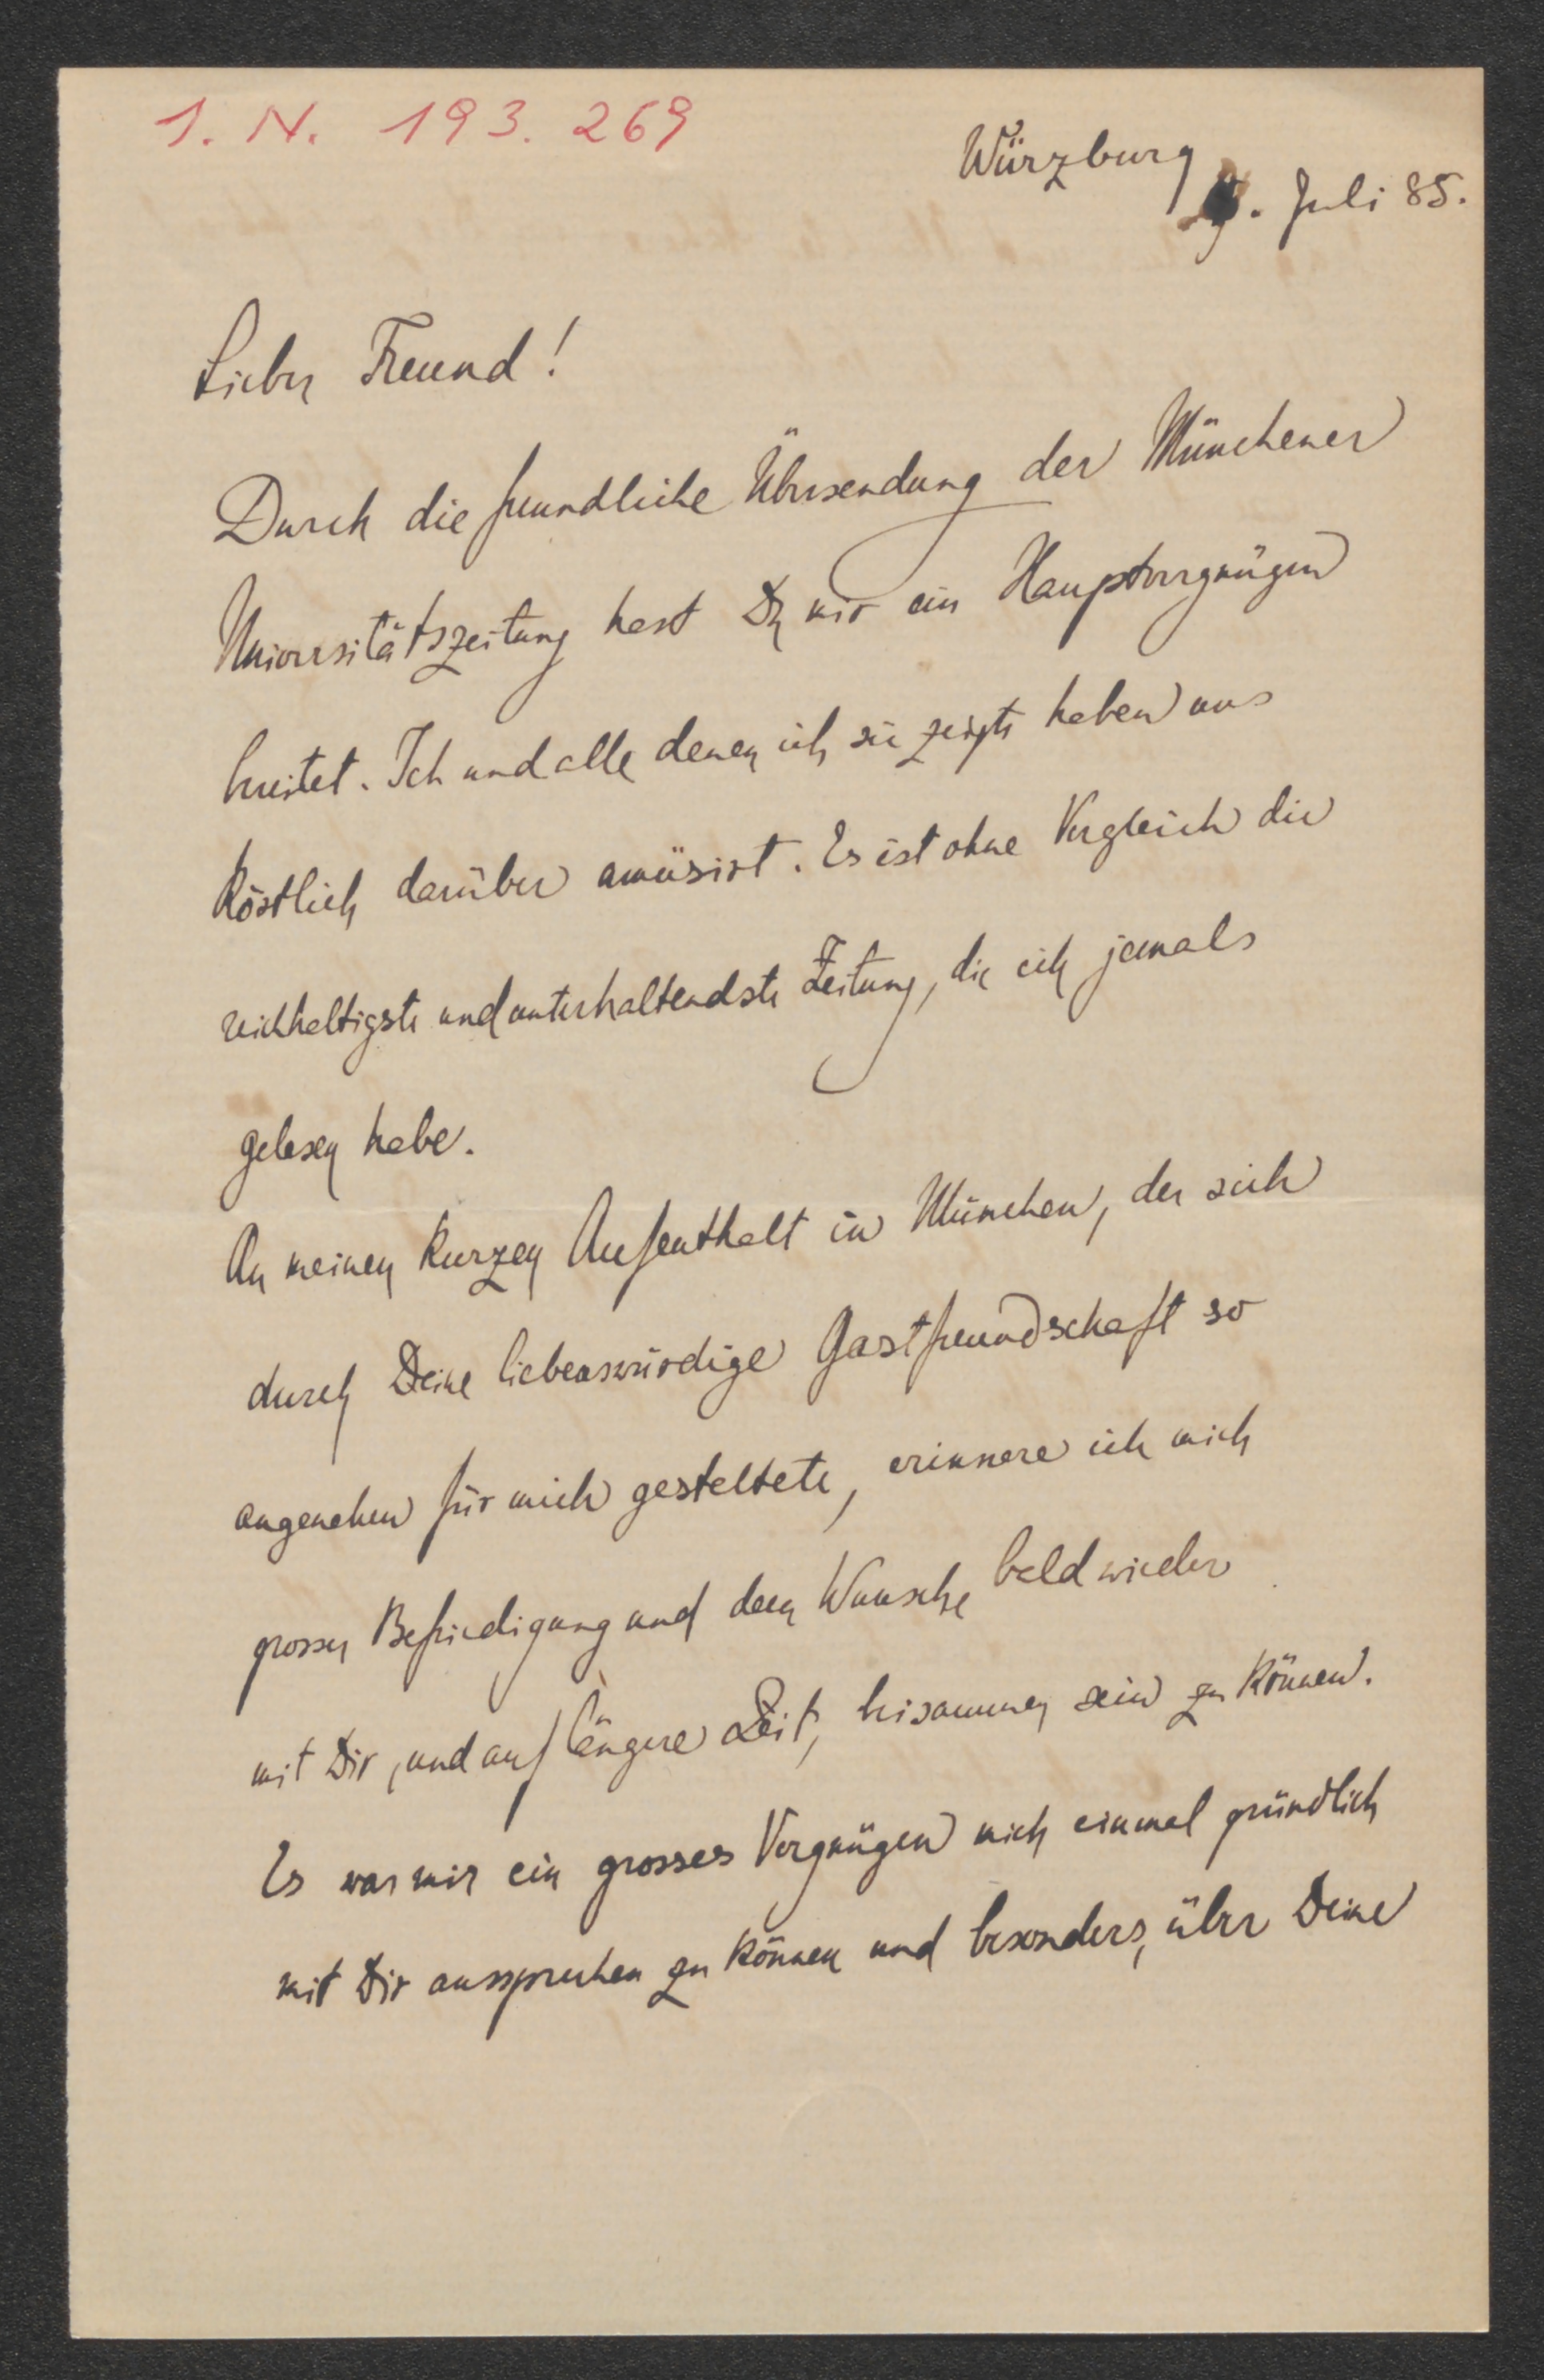 I. N. 193.269
Würzburg
. Juli 85.
Lieber Freund!
Durch die freundliche Übersendung der Münchener
Universitätszeitung hast Du mir ein Hauptvergnügen
bereitet. Ich und alle denen ich sie zeigte haben uns
köstlich darüber amüsirt. Es ist ohne Vergleich die
reichhaltigste und unterhaltendste Zeitung, die ich jemals
gelesen habe.
An meinen kurzen Aufenthalt in München, der sich
durch Deine liebenswürdige Gastfreundschaft so
angenehm für mich gestaltete, erinnere ich mich
grosser Befriedigung und dem Wunsche bald wieder
mit Dir, und auf längere Zeit, beisammen sein zu können.
Es war mir ein grosses Vergnügen mich einmal gründlich
mit Dir aussprechen zu können und besonders, über Deine